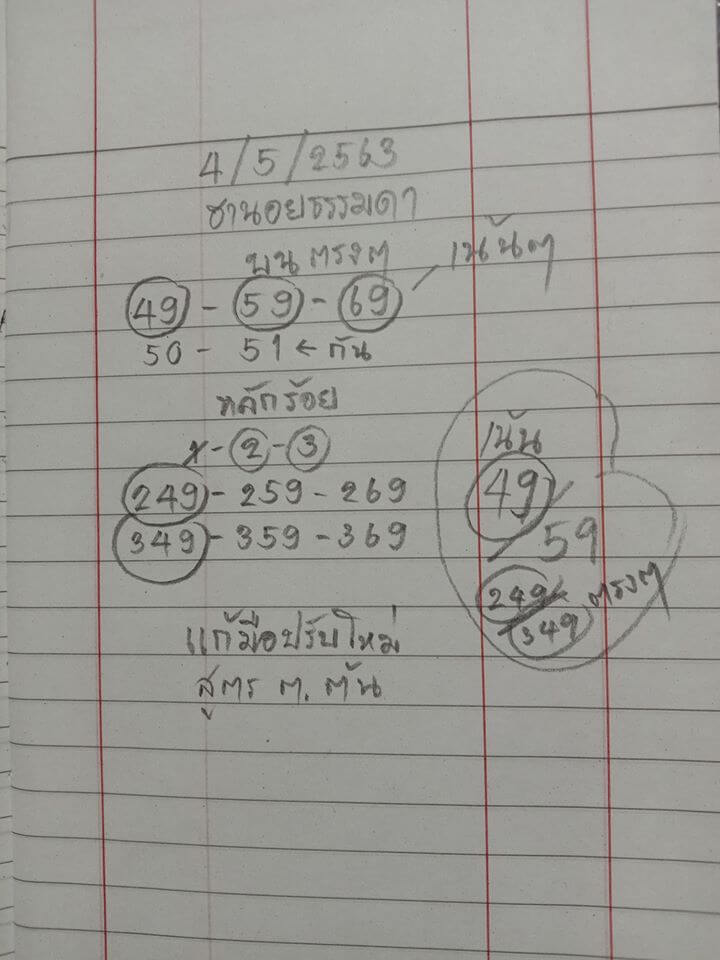 4/5/2563
ฮานอยธรรมดา
บน ตรงๆ
49 - 59 - 69 / เน้นๆ
50 - 51 ← กัน
หลักร้อย
x - 2 - 3
249 - 259 - 269
349 - 359 - 369
แก้มือปรับใหม่
สูตร ต. ต้น
เน้น
49 /
/ 59
249
349 ตรงๆ